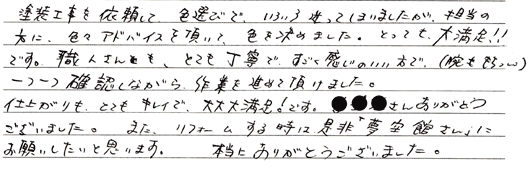 塗装工事を依頼して、色選びで、いろいろ迷ってしまいましたが、担当の
方に、色々アドバイスを頂いて、色を決めました。とっても、大満足!!
です。職人さんも、とても丁寧で、すごく感じのいい方で、(腕ももちろん)
一つ一つ確認しながら、作業を進めて頂けました。
仕上がりも、とてもキレイで、大大大満足!です。●●●さんありがとう
ございました。また、リフォームする時は是非「夢空館さん」に
お願いしたいと思います。本当にありがとうございました。